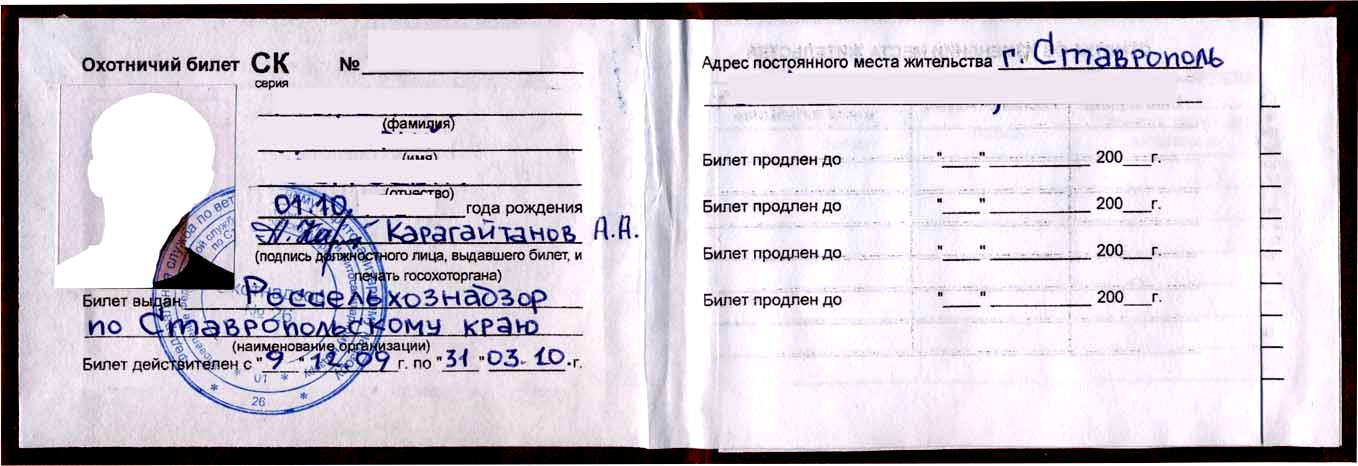 Охотничий билет СК №
серия
(фамилия)
(имя)
(отчество)
01.10. года рождения
Карагайтанов А.А.
(подпись должностного лица, выдавшего билет, и
печать госохоторгана)
Билет выдан Россельхознадзор
по Ставропольскому краю
(наименование организации)
Билет действителен с "9" 12.09 г. по "31" 03.10. г.
26
Адрес постоянного места жительства г. Ставрополь
Билет продлен до "___" ____________ 200___г.
Билет продлен до "___" ____________ 200___г.
Билет продлен до "___" ____________ 200___г.
Билет продлен до "___" ____________ 200___г.